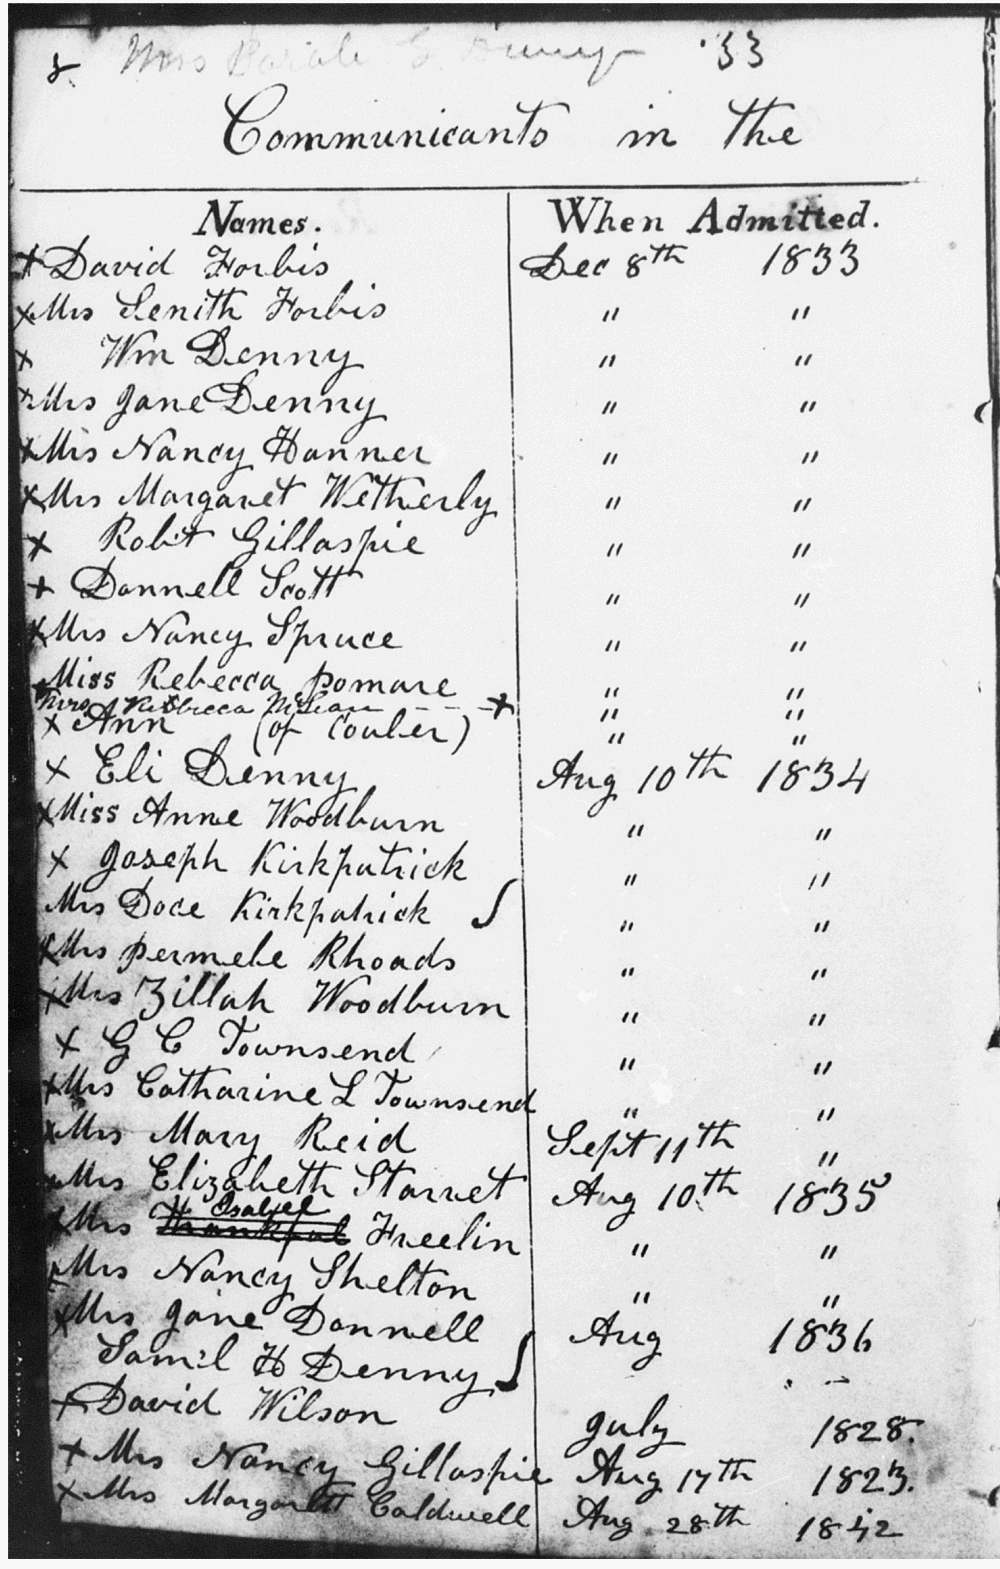 8. Mrs Sarah G Denny '33
Communicants in the
Names. When Admitted.
+ David Forbis Dec 8th 1833
x Mrs Senith Forbis " "
x Wm Denny " "
x Mrs Jane Denny " "
x Mrs Nancy Hanner " "
x Mrs Margaret Wetherly " "
x Robt Gillaspie " "
+ Donnell Scott " "
x Mrs Nancy Spruce " "
x Miss Rebecca Pomare " "
Mrs Rebecca McLean - - - + " "
x Ann (of Coubler) " "
x Eli Denny Aug 10th 1834
x Miss Anne Woodburn " "
x Joseph Kirkpatrick " "
Mrs Doce Kirkpatrick " "
x Mrs Permele Rhoads " "
x Mrs Zillah Woodburn " "
x G C Townsend " "
x Mrs Catharine L Townsend " "
x Mrs Mary Reid Sept 11th "
x Mrs Elizabeth Starret Aug 10th 1835
Isabell
x Mrs Thankful Freelin " "
x Mrs Nancy Shelton " "
x Mrs Jane Donnell Aug 1836
Saml H Denny
+ David Wilson July 1828.
+ Mrs Nancy Gillaspie Aug 17th 1823.
x Mrs Margarett Caldwell Aug 28th 1842